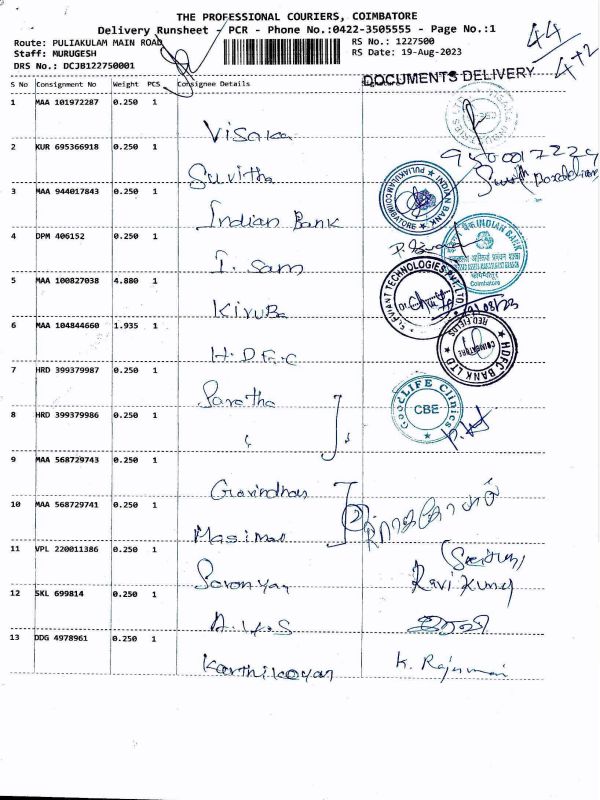 THE PROFESSIONAL COURIERS, COIMBATORE
Delivery Runsheet - PCR - Phone No.:0422-3505555 - Page No.:1
Route: PULIAKULAM MAIN ROAD RS No.: 1227500
Staff: MURUGESH RS Date: 19-Aug-2023
DRS No.: DCJB122750001
44
4+2
DOCUMENTS DELIVERY
S No Consignment No Weight PCS Consignee Details
1 MAA 101972287 0.250 1 Visaka
2 KUR 695366918 0.250 1 Suvitha
3 MAA 944017843 0.250 1 Indian Bank
INDIAN BANK PULIAKULAM COIMBATORE
4 DPM 406152 0.250 1 I. Sam
INDIAN BANK
Coimbatore
5 MAA 100827038 4.880 1 Kiruba
TECHNOLOGIES PVT LTD
6 MAA 104844660 1.935 1 H.D.F.C
HDFC BANK LTD RED FIELDS COIMBATORE
7 HRD 399379987 0.250 1
8 HRD 399379986 0.250 1
GoodLIFE Clinics CBE
9 MAA 568729743 0.250 1
10 MAA 568729741 0.250 1
2
11 VPL 220011386 0.250 1 Ravi Kumar
12 SKL 699814 0.250 1
13 DDG 4978961 0.250 1 Karthikeyan